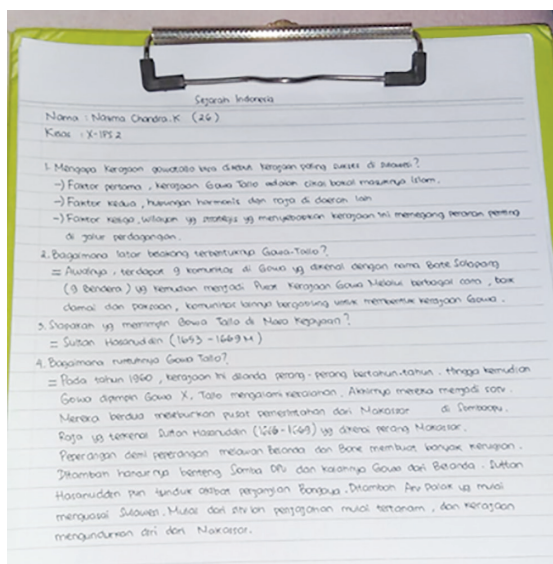 Sejarah Indonesia
Nama : Nahma Chandra.K (26)
Kelas : X-IPS 2
1. Mengapa Kerajaan gowatallo bisa disebut kerajaan paling sukses di sulawesi?
-) Faktor pertama, kerajaan Gowa Tallo adalah cikal bakal masuknya Islam.
-) Faktor kedua, hubungan harmonis dgn raja di daerah lain
-) Faktor ketiga, wilayah yg strategis yg menyebabkan kerajaan ini memegang peranan penting
di jalur perdagangan.
2. Bagaimana latar belakang terbentuknya Gowa-Tallo?
= Awalnya, terdapat 9 komunitas di Gowa yg dikenal dengan nama Bate Salapang
(9 Bendera) yg kemudian menjadi Pusat Kerajaan Gowa Melalui berbagai cara, baik
damai dan paksaan, komunitas lainnya bergabung untuk membentuk kerajaan Gowa.
3. Siapakah yg memimpin Gowa Tallo di Masa Kejayaan?
= Sultan Hasanuddin (1653-1669 M)
4. Bagaimana runtuhnya Gowa Tallo?
= Pada tahun 1960, kerajaan ini dilanda perang-perang bertahun-tahun. Hingga kemudian
Gowa dipimpin Gowa X, Tallo mengalami kekalahan. Akhirnya mereka menjadi satu.
Mereka berdua meleburkan pusat pemerintahan dari Makassar di Sombaopu.
Raja yg terkenal Sultan Hasanuddin (1616-1669) yg dikenal perang Makassar.
Peperangan demi peperangan melawan Belanda dan Bone membuat banyak kerugian.
Ditambah hancurnya benteng Somba OPU dan kalahnya Gowa dari Belanda. Sultan
Hasanuddin pun tunduk akibat perjanjian Bongaya. Ditambah Aru Palak yg mulai
menguasai Sulawesi. Mulai dari situlah penjajahan mulai tertanam, dan kerajaan
mengundurkan diri dari Makassar.